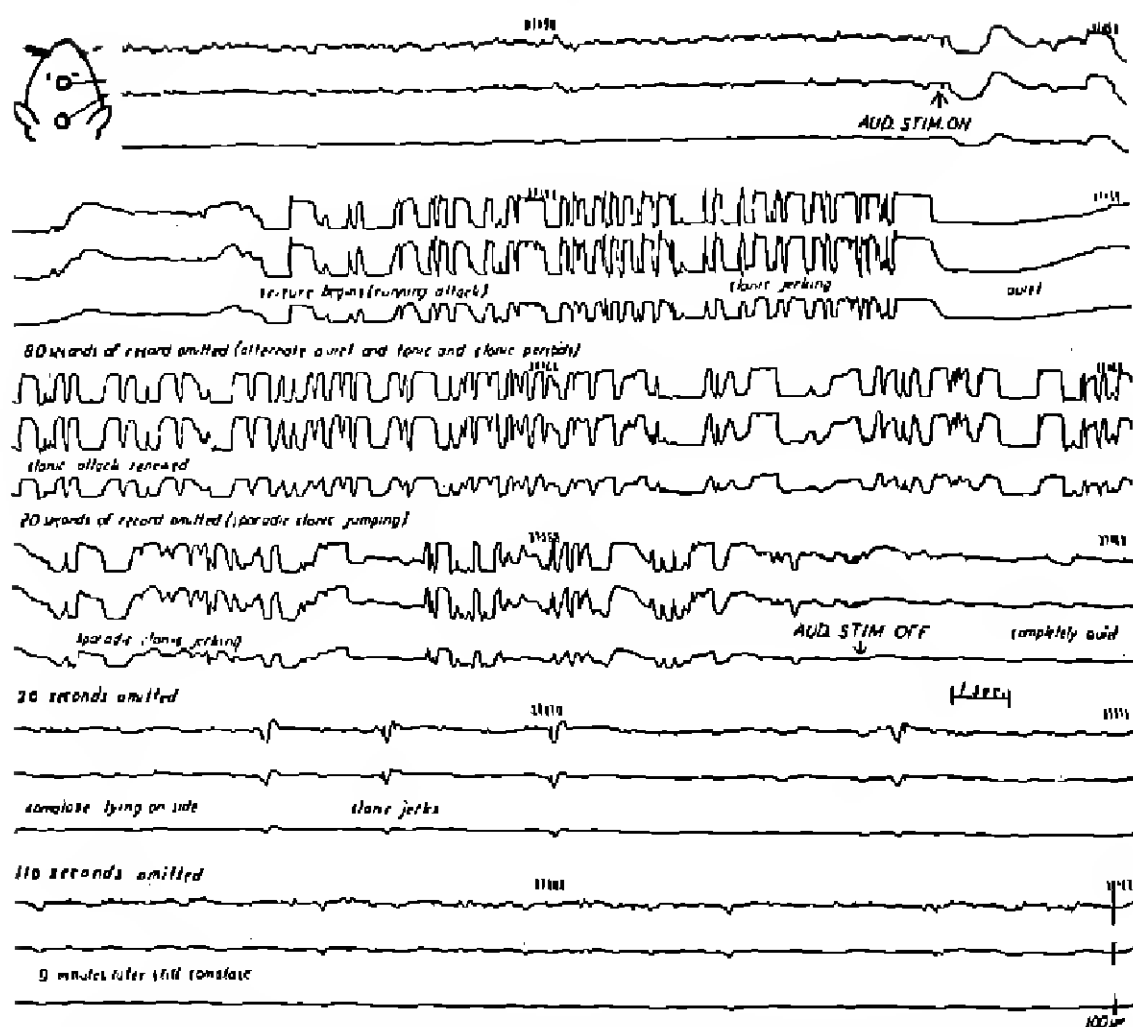 AUD. STIM. ON
seizure begins (running attack)
clonic jerking
quiet
80 seconds of record omitted (alternate quiet and tonic and clonic periods)
clonic attack renewed
20 seconds of record omitted (sporadic clonic jumping)
sporadic clonic jerking
AUD. STIM OFF
completely quiet
20 seconds omitted
1 sec.
comatose lying on side
clonic jerks
110 seconds omitted
9 minutes later still comatose